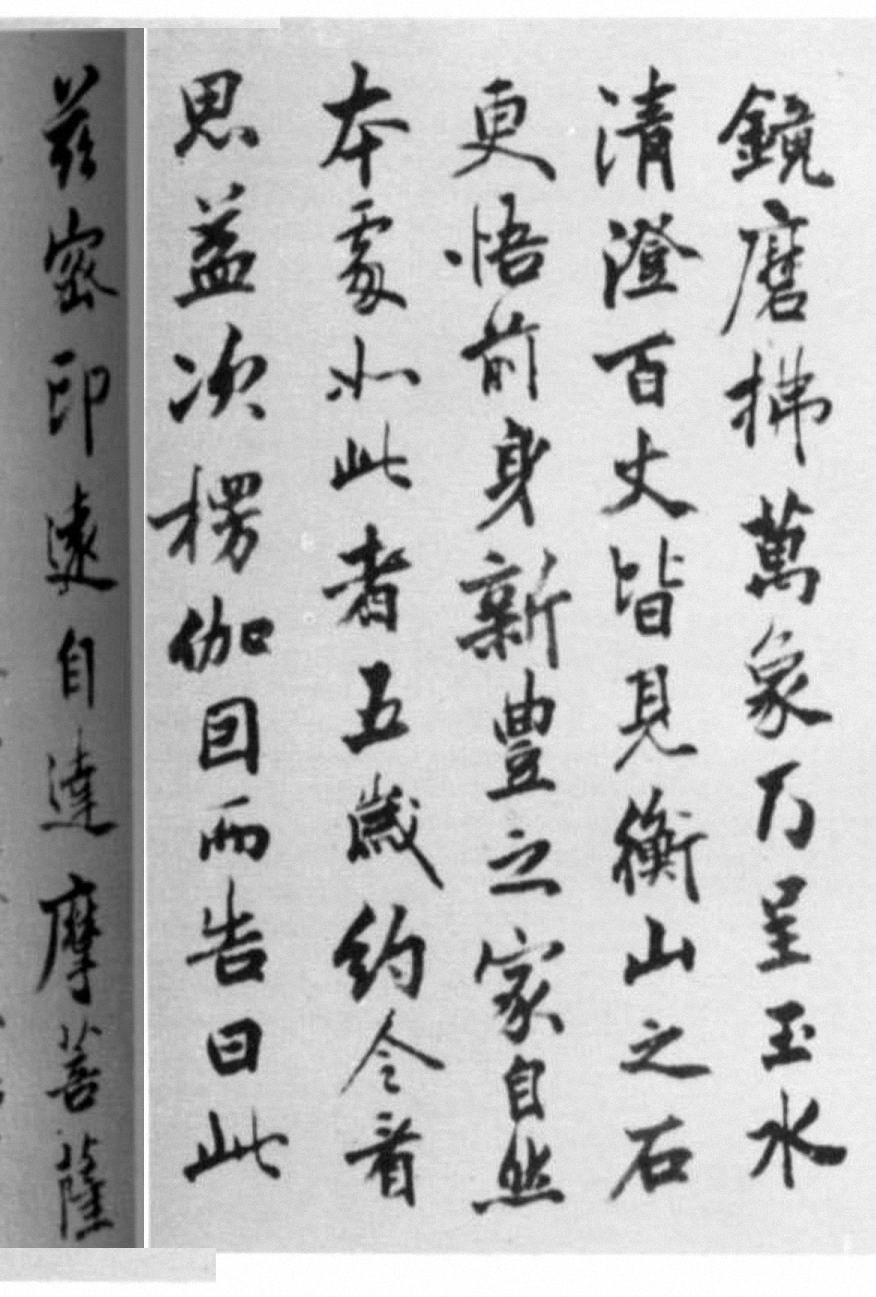 鏡磨拂萬象乃呈玉水
清澄百丈皆見衡山之石
更悟前身新豊之家自然
本處如此者五歲約令看
思益次楞伽因而告曰此
茲密印遠自達摩菩薩